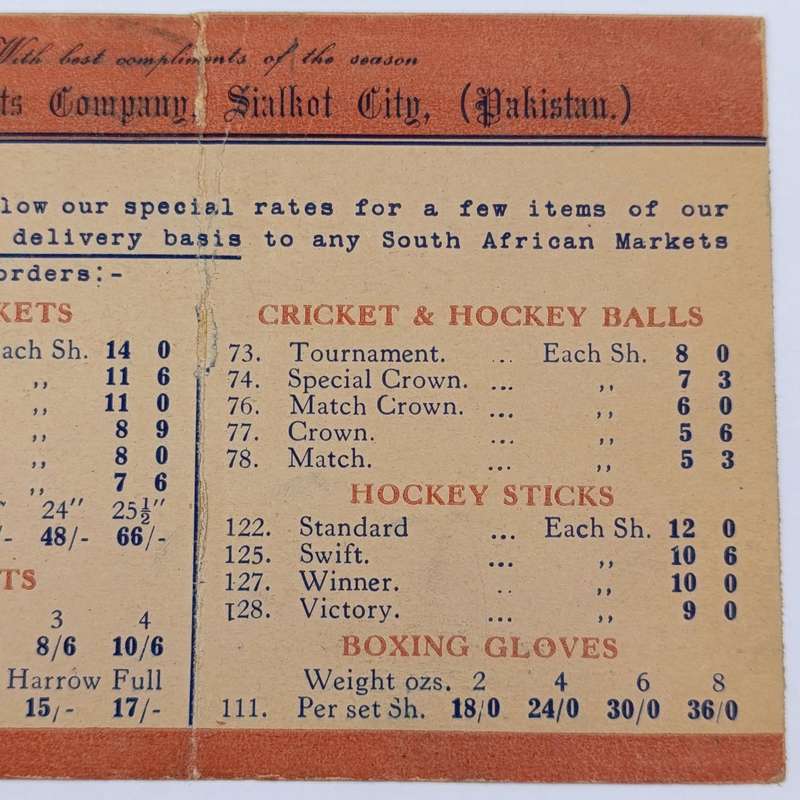 With best compliments of the season
ts Company, Sialkot City, (Pakistan.)
low our special rates for a few items of our
delivery basis to any South African Markets
orders:-
KETS
ach Sh. 14 0
,, 11 6
,, 11 0
,, 8 9
,, 8 0
,, 7 6
24" 25½"
/- 48/- 66/-
TS
3 4
8/6 10/6
Harrow Full
15/- 17/-
CRICKET & HOCKEY BALLS
73. Tournament. ... Each Sh. 8 0
74. Special Crown. ... ,, 7 3
76. Match Crown. ... ,, 6 0
77. Crown. ... ,, 5 6
78. Match. ... ,, 5 3
HOCKEY STICKS
122. Standard ... Each Sh. 12 0
125. Swift. ... ,, 10 6
127. Winner. .. ,, 10 0
128. Victory. ... ,, 9 0
BOXING GLOVES
Weight ozs. 2 4 6 8
111. Per set Sh. 18/0 24/0 30/0 36/0